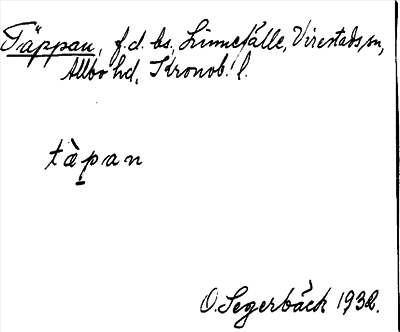 Täppan, f.d. bs, Linnefälle, Virestads sn,
Allbo hd, Kronob. l.
tàp̠an
O. Segerbäck 1932.